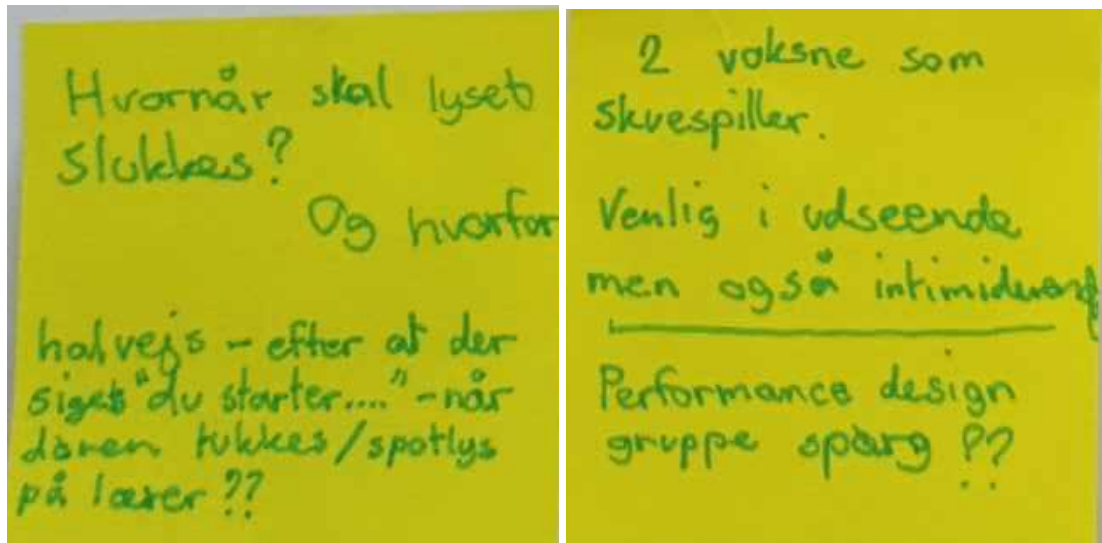 Hvornår skal lyset
slukkes?
Og hvorfor
halvejs - efter at der
siges "du starter...." - når
døren lukkes/spotlys
på lærer ??
2 voksne som
skuespiller.
Venlig i udseende
men også intimiderend
Performance design
gruppe spørg ??